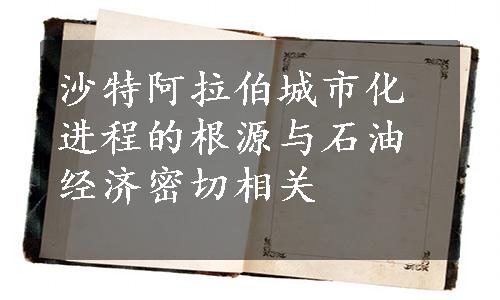 沙特阿拉伯城市化
进程的根源与石油
经济密切相关